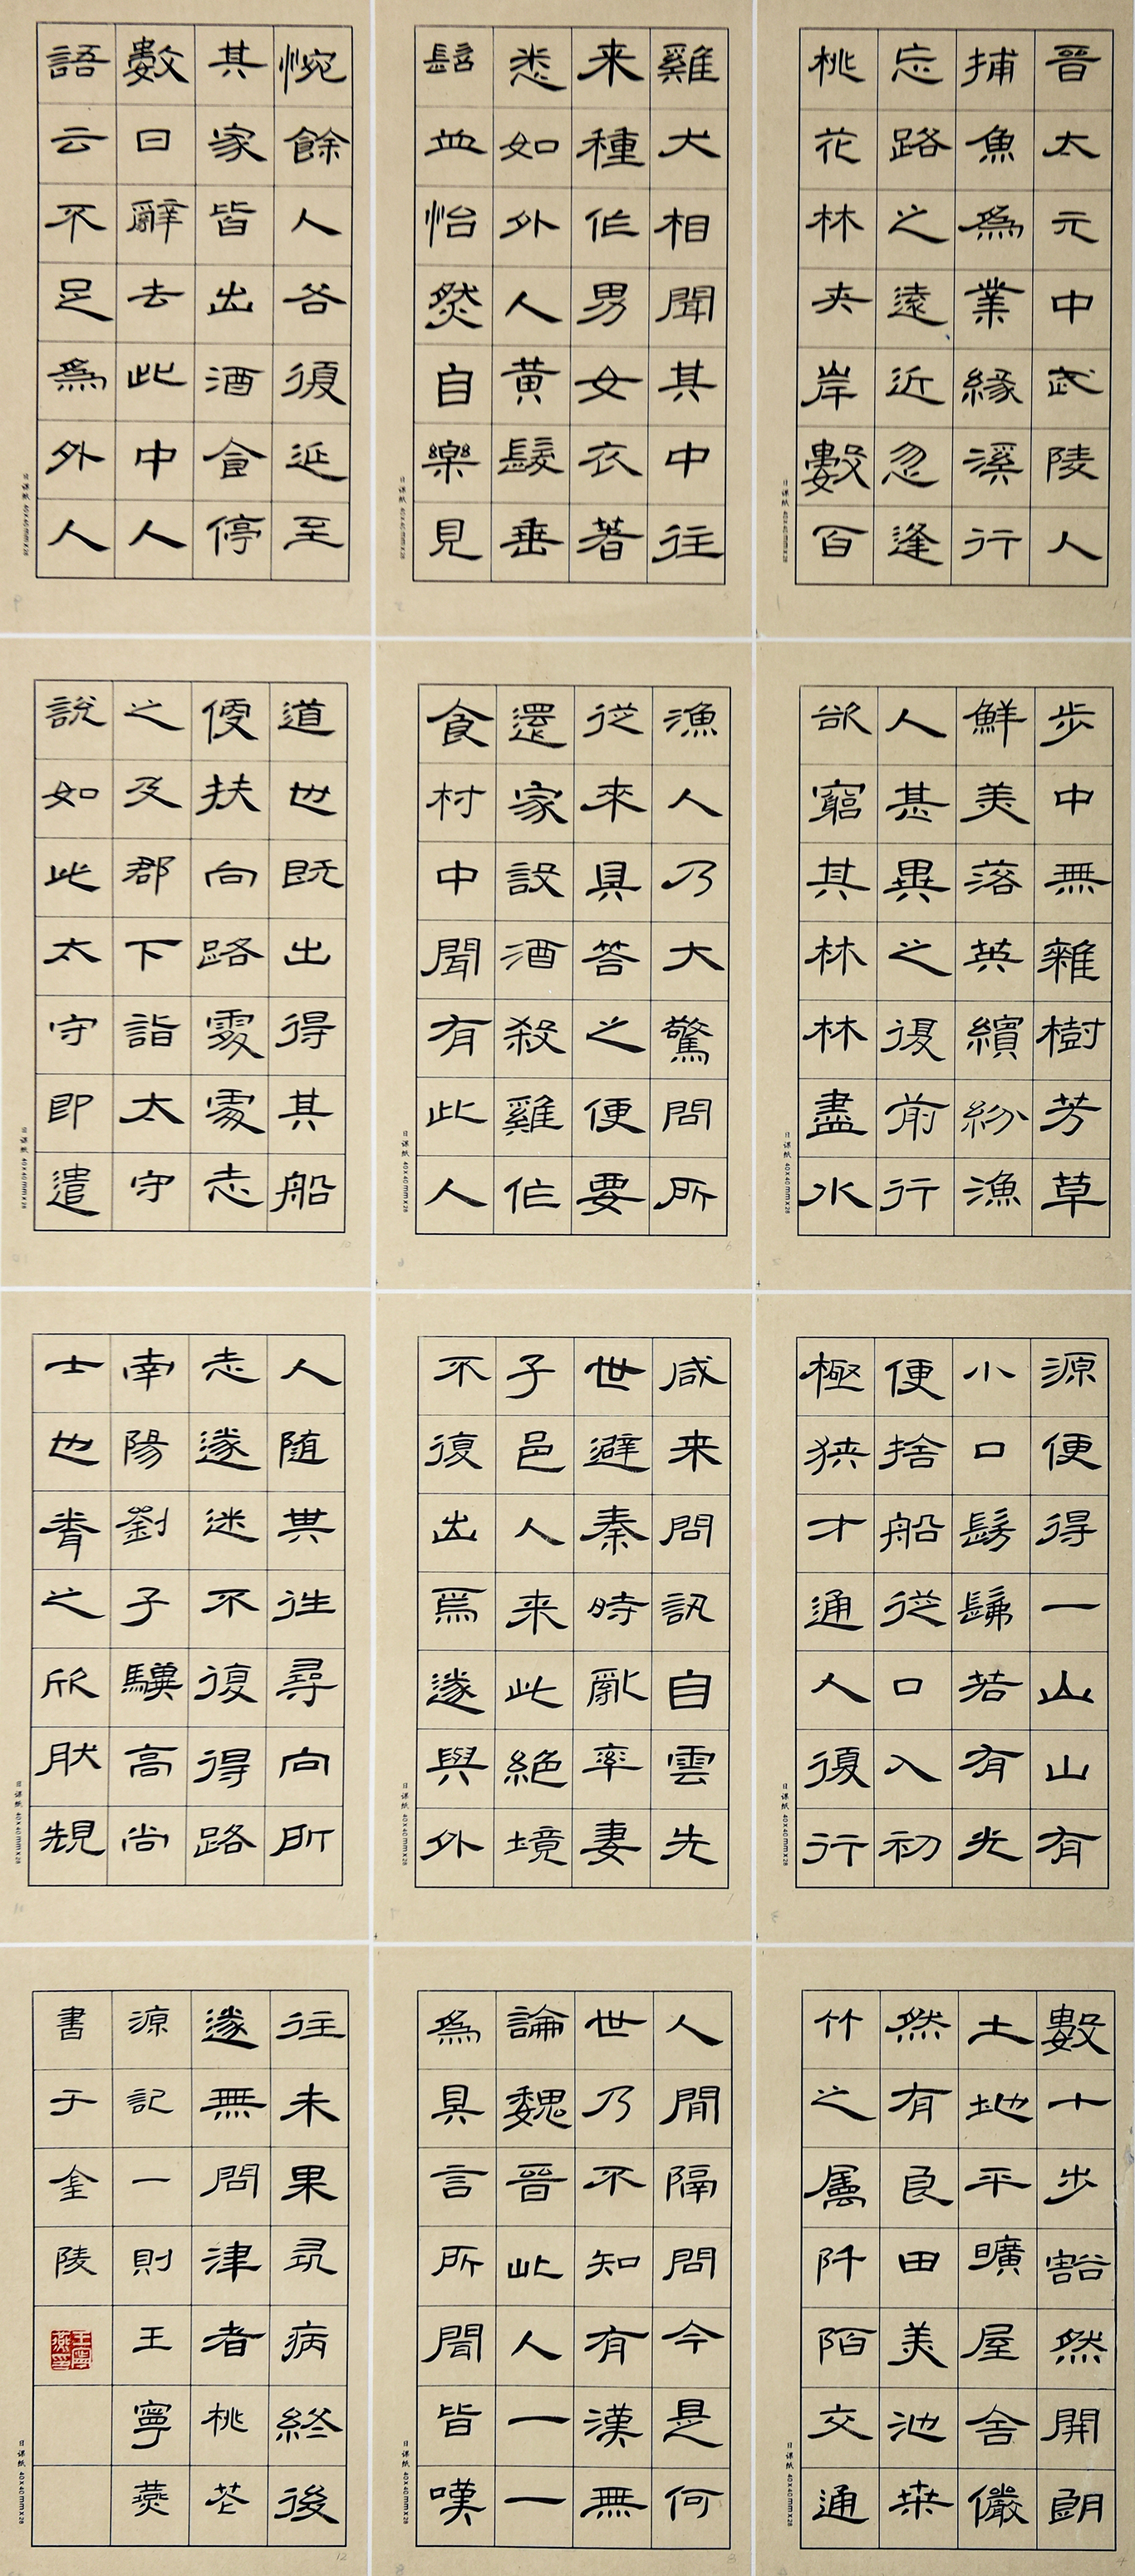 晉太元中武陵人
捕魚為業緣溪行
忘路之遠近忽逢
桃花林夾岸數百
日課紙 40x40mmx28
步中無雜樹芳草
鮮美落英繽紛漁
人甚異之復前行
欲窮其林林盡水
日課紙 40x40mmx28
源便得一山山有
小口髣髴若有光
便捨船從口入初
極狹才通人復行
日課紙 40x40mmx28
數十步豁然開朗
土地平曠屋舍儼
然有良田美池桑
竹之属阡陌交通
日課紙 40x40mmx28
雞犬相聞其中往
来種作男女衣著
悉如外人黄髮垂
髫並怡然自樂見
日課紙 40x40mmx28
漁人乃大驚問所
從來具答之便要
還家設酒殺雞作
食村中聞有此人
日課紙 40x40mmx28
咸来問訊自雲先
世避秦時亂率妻
子邑人来此絕境
不復出焉遂與外
日課紙 40x40mmx28
人間隔問今是何
世乃不知有漢無
論魏晉此人一一
為具言所聞皆嘆
日課紙 40x40mmx28
惋餘人各復延至
其家皆出酒食停
數日辭去此中人
語云不足為外人
日課紙 40x40mmx28
道也既出得其船
便扶向路處處志
之及郡下詣太守
說如此太守即遣
日課紙 40x40mmx28
人随其往尋向所
志遂迷不復得路
南陽劉子驥高尚
士也聞之欣然規
日課紙 40x40mmx28
往未果尋病終後
遂無問津者桃花
源記一則王寧燕
書于金陵
王寧燕印
日課紙 40x40mmx28